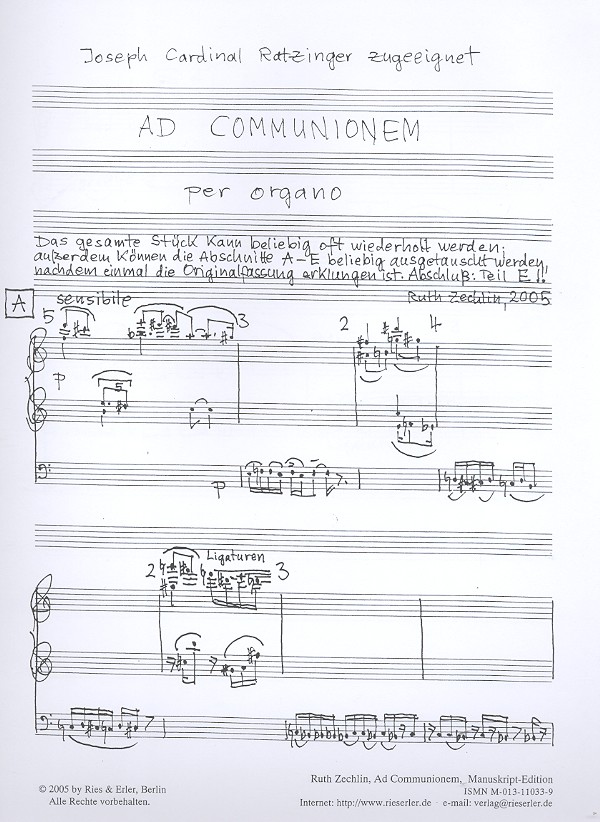 Joseph Cardinal Ratzinger zugeeignet
AD COMMUNIONEM
per organo
Das gesamte Stück kann beliebig oft wiederholt werden;
außerdem können die Abschnitte A–E beliebig ausgetauscht werden,
nachdem einmal die Originalfassung erklungen ist. Abschluß: Teil E!!
Ruth Zechlin, 2005
A sensibile
5 3 2 4
p
5
p
2 Ligaturen 3
© 2005 by Ries & Erler, Berlin
Alle Rechte vorbehalten.
Ruth Zechlin, Ad Communionem, Manuskript-Edition
ISMN M-013-11033-9
Internet: http://www.rieserler.de · e-mail: verlag@rieserler.de